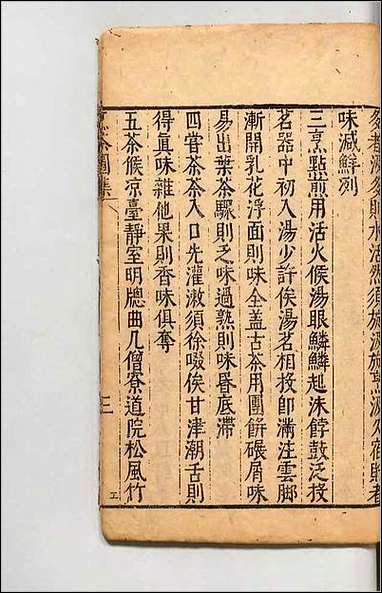 多者汲多則水活然須旋汲旋烹汲久宿貯者
味減鮮冽
三烹點煎用活火候湯眼鱗鱗起沫餑鼓泛投
茗器中初入湯少許俟湯茗相投卽滿注雲脚
漸開乳花浮面則味全蓋古茶用團餅碾屑味
易出葉茶驟則乏味過熟則味昏底滯
四嘗茶茶入口先灌漱須徐啜俟甘津潮舌則
得眞味雜他果則香味俱奪
五茶候凉臺靜室明牕曲几僧寮道院松風竹
茶圖集
三
工